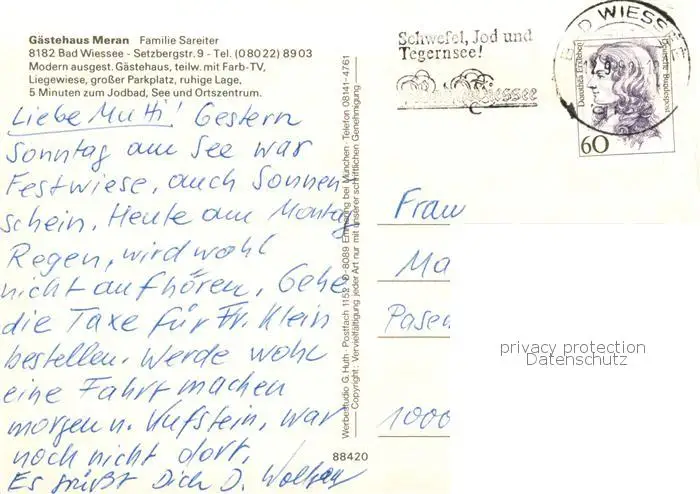 Gästehaus Meran Familie Sareiter
8182 Bad Wiessee - Setzbergstr. 9 - Tel. (08022) 8903
Modern ausgest. Gästehaus, teilw. mit Farb-TV,
Liegewiese, großer Parkplatz, ruhige Lage,
5 Minuten zum Jodbad, See und Ortszentrum.
Liebe Mutti! Gestern
Sonntag am See war
Festwiese, auch Sonnen-
schein. Heute am Montag
Regen, wird wohl
nicht aufhören. Gehe
die Taxe für Fr. Klein
bestellen. Werde wohl
eine Fahrt machen
morgen n. Kufstein, war
noch nicht dort.
Es grüßt Dich D. Wolfgang
Werbestudio G. Huth · Postfach 1152 · D-8089 Emmering bei München · Telefon 08141-4761
Copyright: Vervielfältigung jeder Art nur mit unserer schriftlichen Genehmigung
88420
Schwefel, Jod und
Tegernsee!
Wiessee
BAD WIESSEE
Dorothea Erxleben
Deutsche Bundespost
60
Frau
Ma
Pasen
1000
privacy protection
Datenschutz